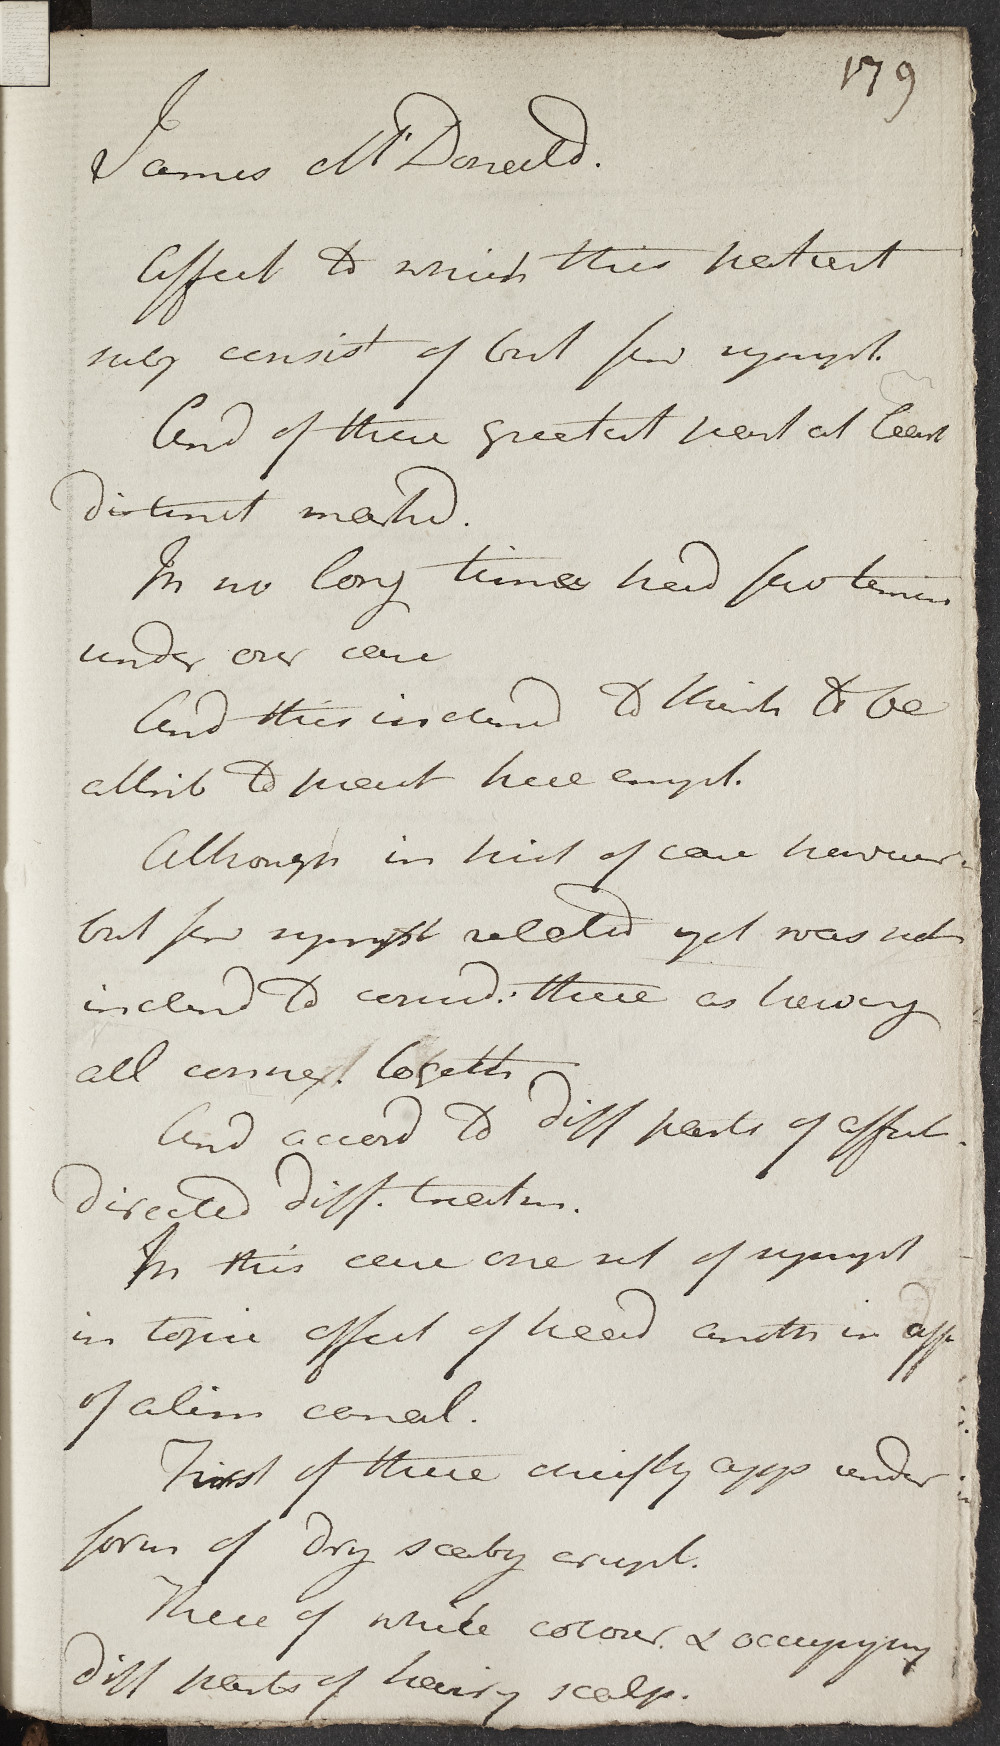 179
James McDonald.
Affect to which this patient
subj consist of but few sympt.
And of these greatest part at least
distinct marked.
In no long time had few
under our care
And this inclined to think to be
attrib to pecul here empl.
Although in hist of case however
but few sympt related yet was not
inclend to consid. these as having
all connex. togeth
And accord to diff parts of affect.
directed diff. treatm.
In this case one set of sympt
in topic affect of head anoth in aff
of alim canal.
First of these chiefly app under
form of dry scaby erupt.
These of white colour. & occupying
diff parts of hairy scalp.